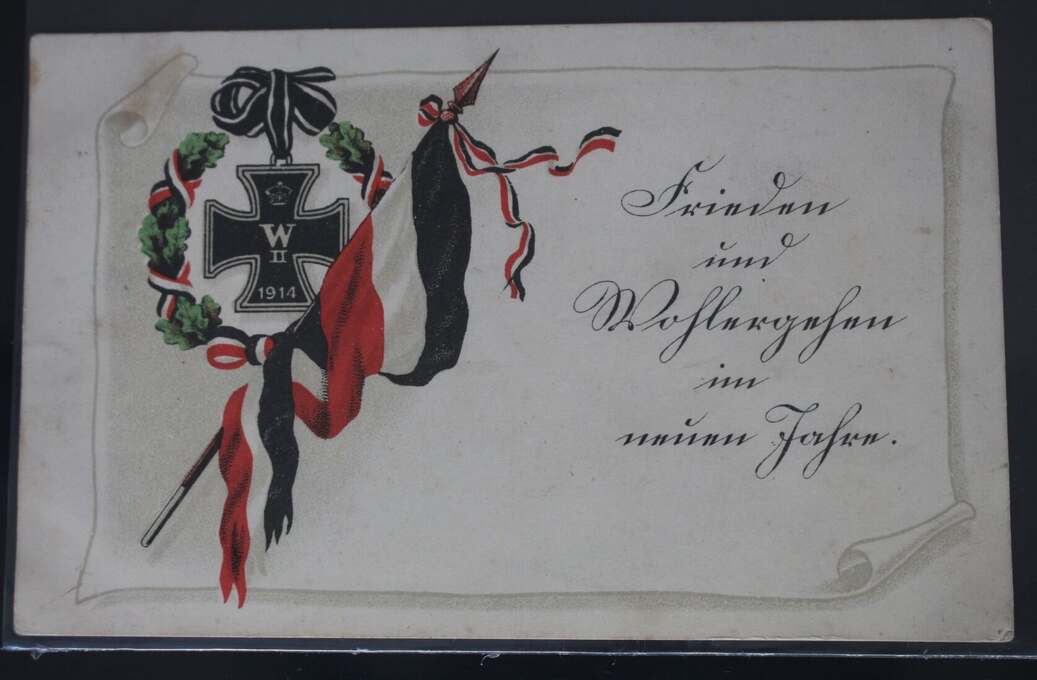 W
II
1914
Frieden
und
Wohlergehen
im
neuen Jahre.